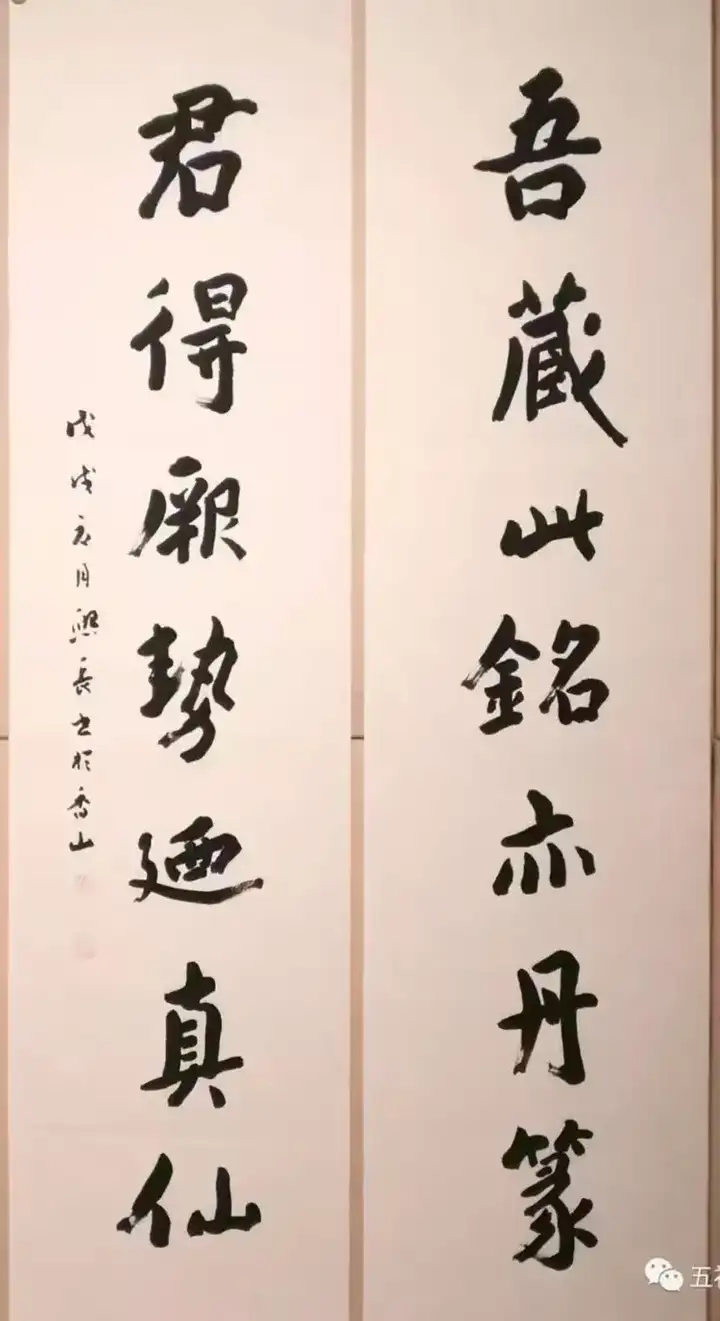 吾藏此銘亦丹篆
君得厥勢廼真仙
戊戌 月熙長书於香山
五